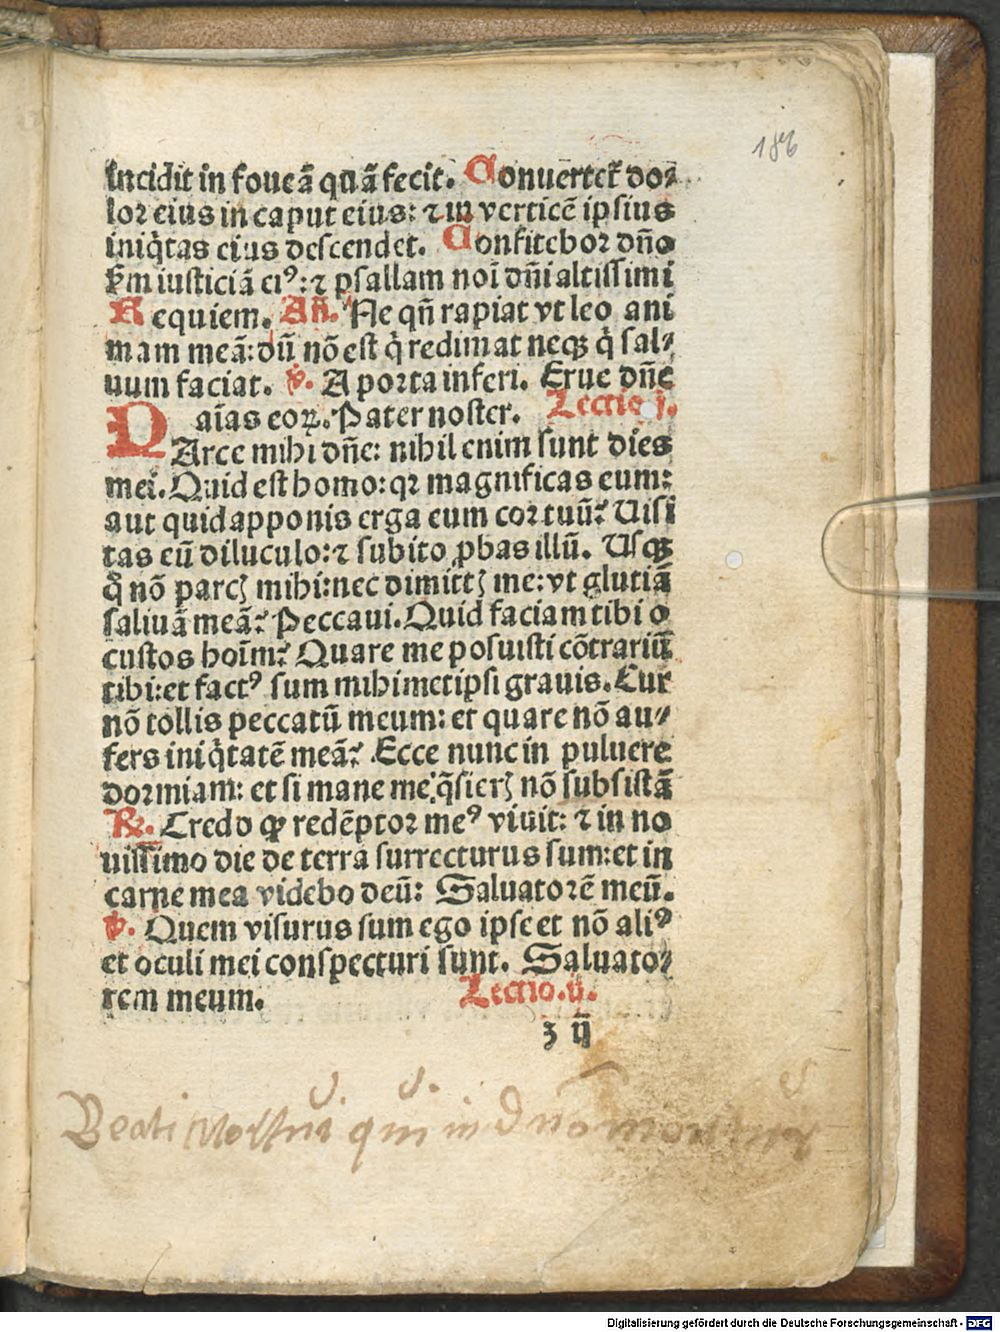 186
incidit in foueā quā fecit. Conuertet̄ do⸗
lor eius in caput eius: ⁊ in verticē ipsius
iniq̇tas eius descendet. Confitebor dño
ẜm iusticiā eiꝰ: ⁊ psallam noī dñi altissimi
Requiem. Añ. Ne qñ rapiat vt leo ani
mam meā: dū nō est q̇ redimat neqꝫ q̇ sal⸗
uum faciat. ℣. A porta inferi. Erue dñe
aīas eoꝝ. Pater noster. Lectio j.
PArce mihi dñe: nihil enim sunt dies
mei. Quid est homo: qꝛ magnificas eum:
aut quid apponis erga eum cor tuū? Uisi
tas eū diluculo: ⁊ subito ꝓbas illū. Usqꝫ
q̊ nō parcꝫ mihi: nec dimittꝫ me: vt glutiā
saliuā meā? Peccaui. Quid faciam tibi o
custos hoīm? Quare me posuisti cōtrariū
tibi: et factꝰ sum mihimetipsi grauis. Cur
nō tollis peccatū meum: et quare nō au⸗
fers iniq̇tatē meā? Ecce nunc in puluere
dormiam: et si mane me q̄sierꝫ nō subsistā
℟. Credo ꝙ redēptor meꝰ viuit: ⁊ in no
uissimo die de terra surrecturus sum: et in
carne mea videbo deū: Saluatorē meū.
℣. Quem visurus sum ego ipse et nō aliꝰ
et oculi mei conspecturi sunt. Saluato⸗
rem meum. Lectio. ij.
ʒ ij
Beati Mortui qui in dno moriuntur
Digitalisierung gefördert durch die Deutsche Forschungsgemeinschaft - DFG